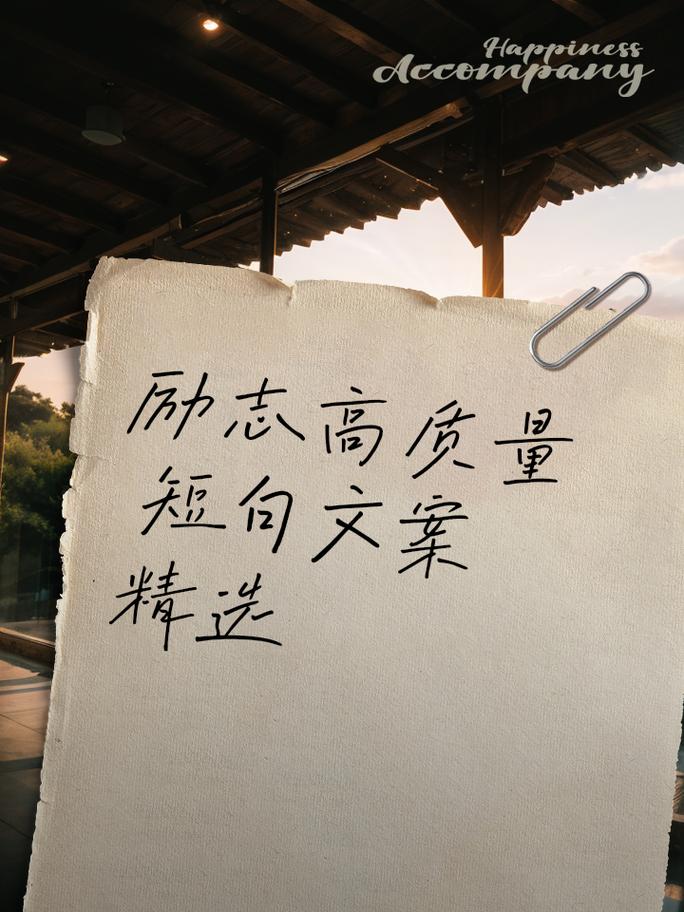 Happiness
Accompany
励志高质量
短句文案
精选